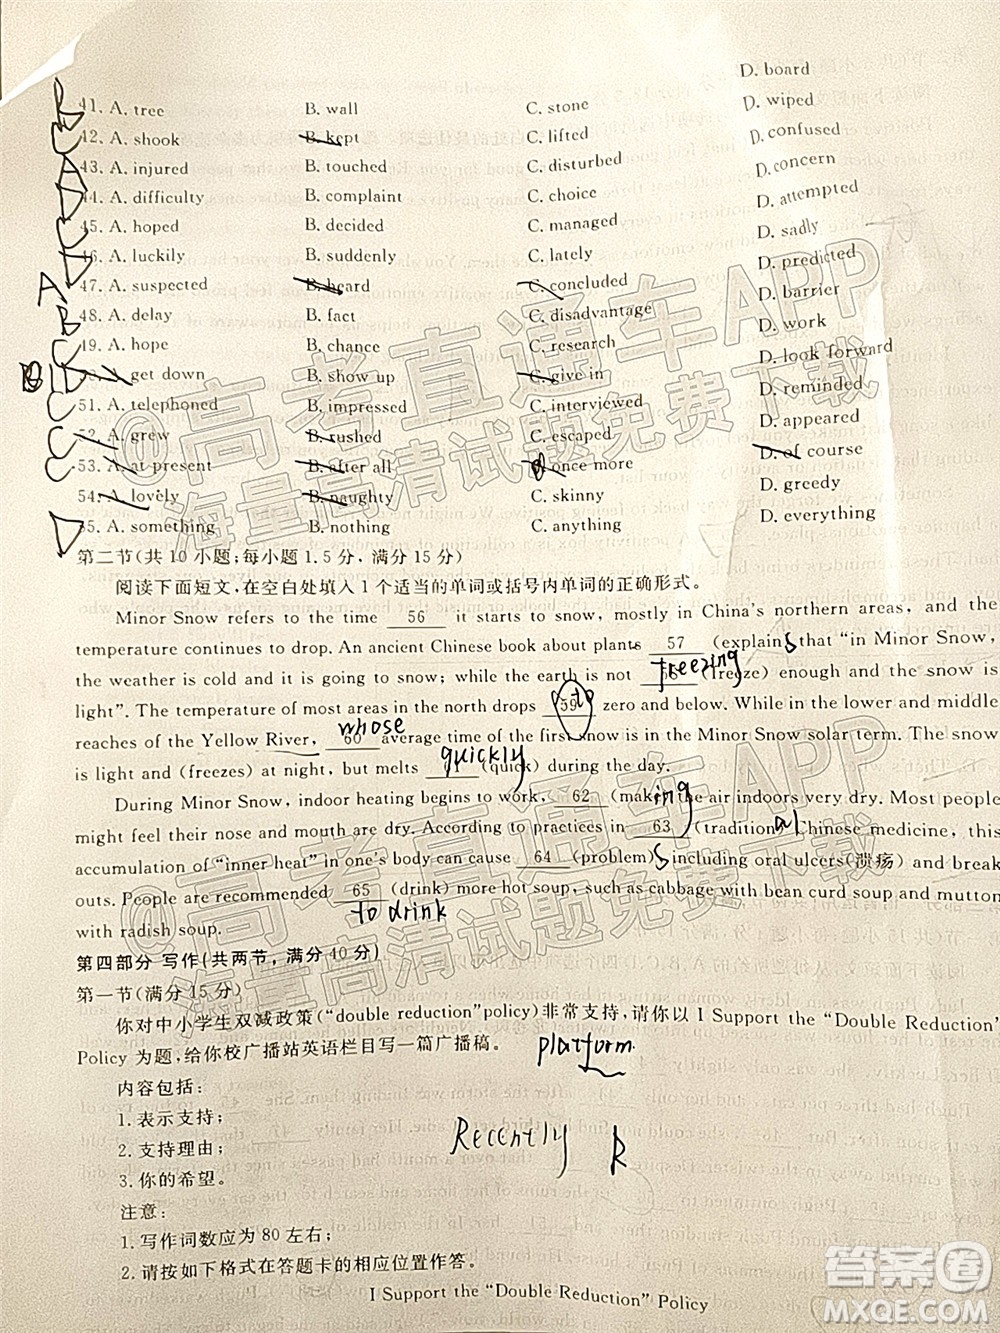 D. board
B 41. A. tree B. wall C. stone D. wiped
C 42. A. shook B. kept C. lifted D. confused
A 43. A. injured B. touched C. disturbed D. concern
D 44. A. difficulty B. complaint C. choice D. attempted
C 45. A. hoped B. decided C. managed D. sadly
D 46. A. luckily B. suddenly C. lately D. predicted
A 47. A. suspected B. heard C. concluded D. barrier
B 48. A. delay B. fact C. disadvantage D. work
C 49. A. hope B. chance C. research D. look forward
A. get down B. show up C. give in D. reminded
C 51. A. telephoned B. impressed C. interviewed D. appeared
C 52. A. grew B. rushed C. escaped D. of course
C 53. A. at present B. after all C. once more D. greedy
54. A. lovely B. naughty C. skinny D. everything
D 55. A. something B. nothing C. anything
第二节(共 10 小题;每小题 1.5 分，满分 15 分)
阅读下面短文,在空白处填入 1 个适当的单词或括号内单词的正确形式。
Minor Snow refers to the time 56 it starts to snow, mostly in China's northern areas, and the
temperature continues to drop. An ancient Chinese book about plants 57 (explain s that “in Minor Snow,
the weather is cold and it is going to snow; while the earth is not freezing (freeze) enough and the snow is
light”. The temperature of most areas in the north drops 59 to zero and below. While in lower and middle
reaches of the Yellow River, 60 whose average time of the first snow is in the Minor Snow solar term. The snow
is light and (freezes) at night, but melts 61 quickly (quick) during the day.
During Minor Snow, indoor heating begins to work, 62 (making the air indoors very dry. Most people
might feel their nose and mouth are dry. According to practices in 63 (tradition al Chinese medicine, this
accumulation of “inner heat” in one's body can cause 64 (problem) s including oral ulcers(溃疡) and break
outs. People are recommended 65 (drink) more hot soup, such as cabbage with bean curd soup and mutton
to drink
with radish soup.
第四部分 写作(共两节,满分 40 分)
第一节(满分 15 分)
你对中小学生双减政策(“double reduction”policy)非常支持,请你以 I Support the “Double Reduction”
Policy 为题,给你校广播站英语栏目写一篇广播稿。 platform
内容包括:
1. 表示支持;
2. 支持理由; Recently R
3. 你的希望。
注意:
1. 写作词数应为 80 左右;
2. 请按如下格式在答题卡的相应位置作答。
I Support the “Double Reduction” Policy
@高考直通车APP
海量高清试题免费下载
@高考直通车APP
海量高清试题免费下载
答案圈
MXQE.COM